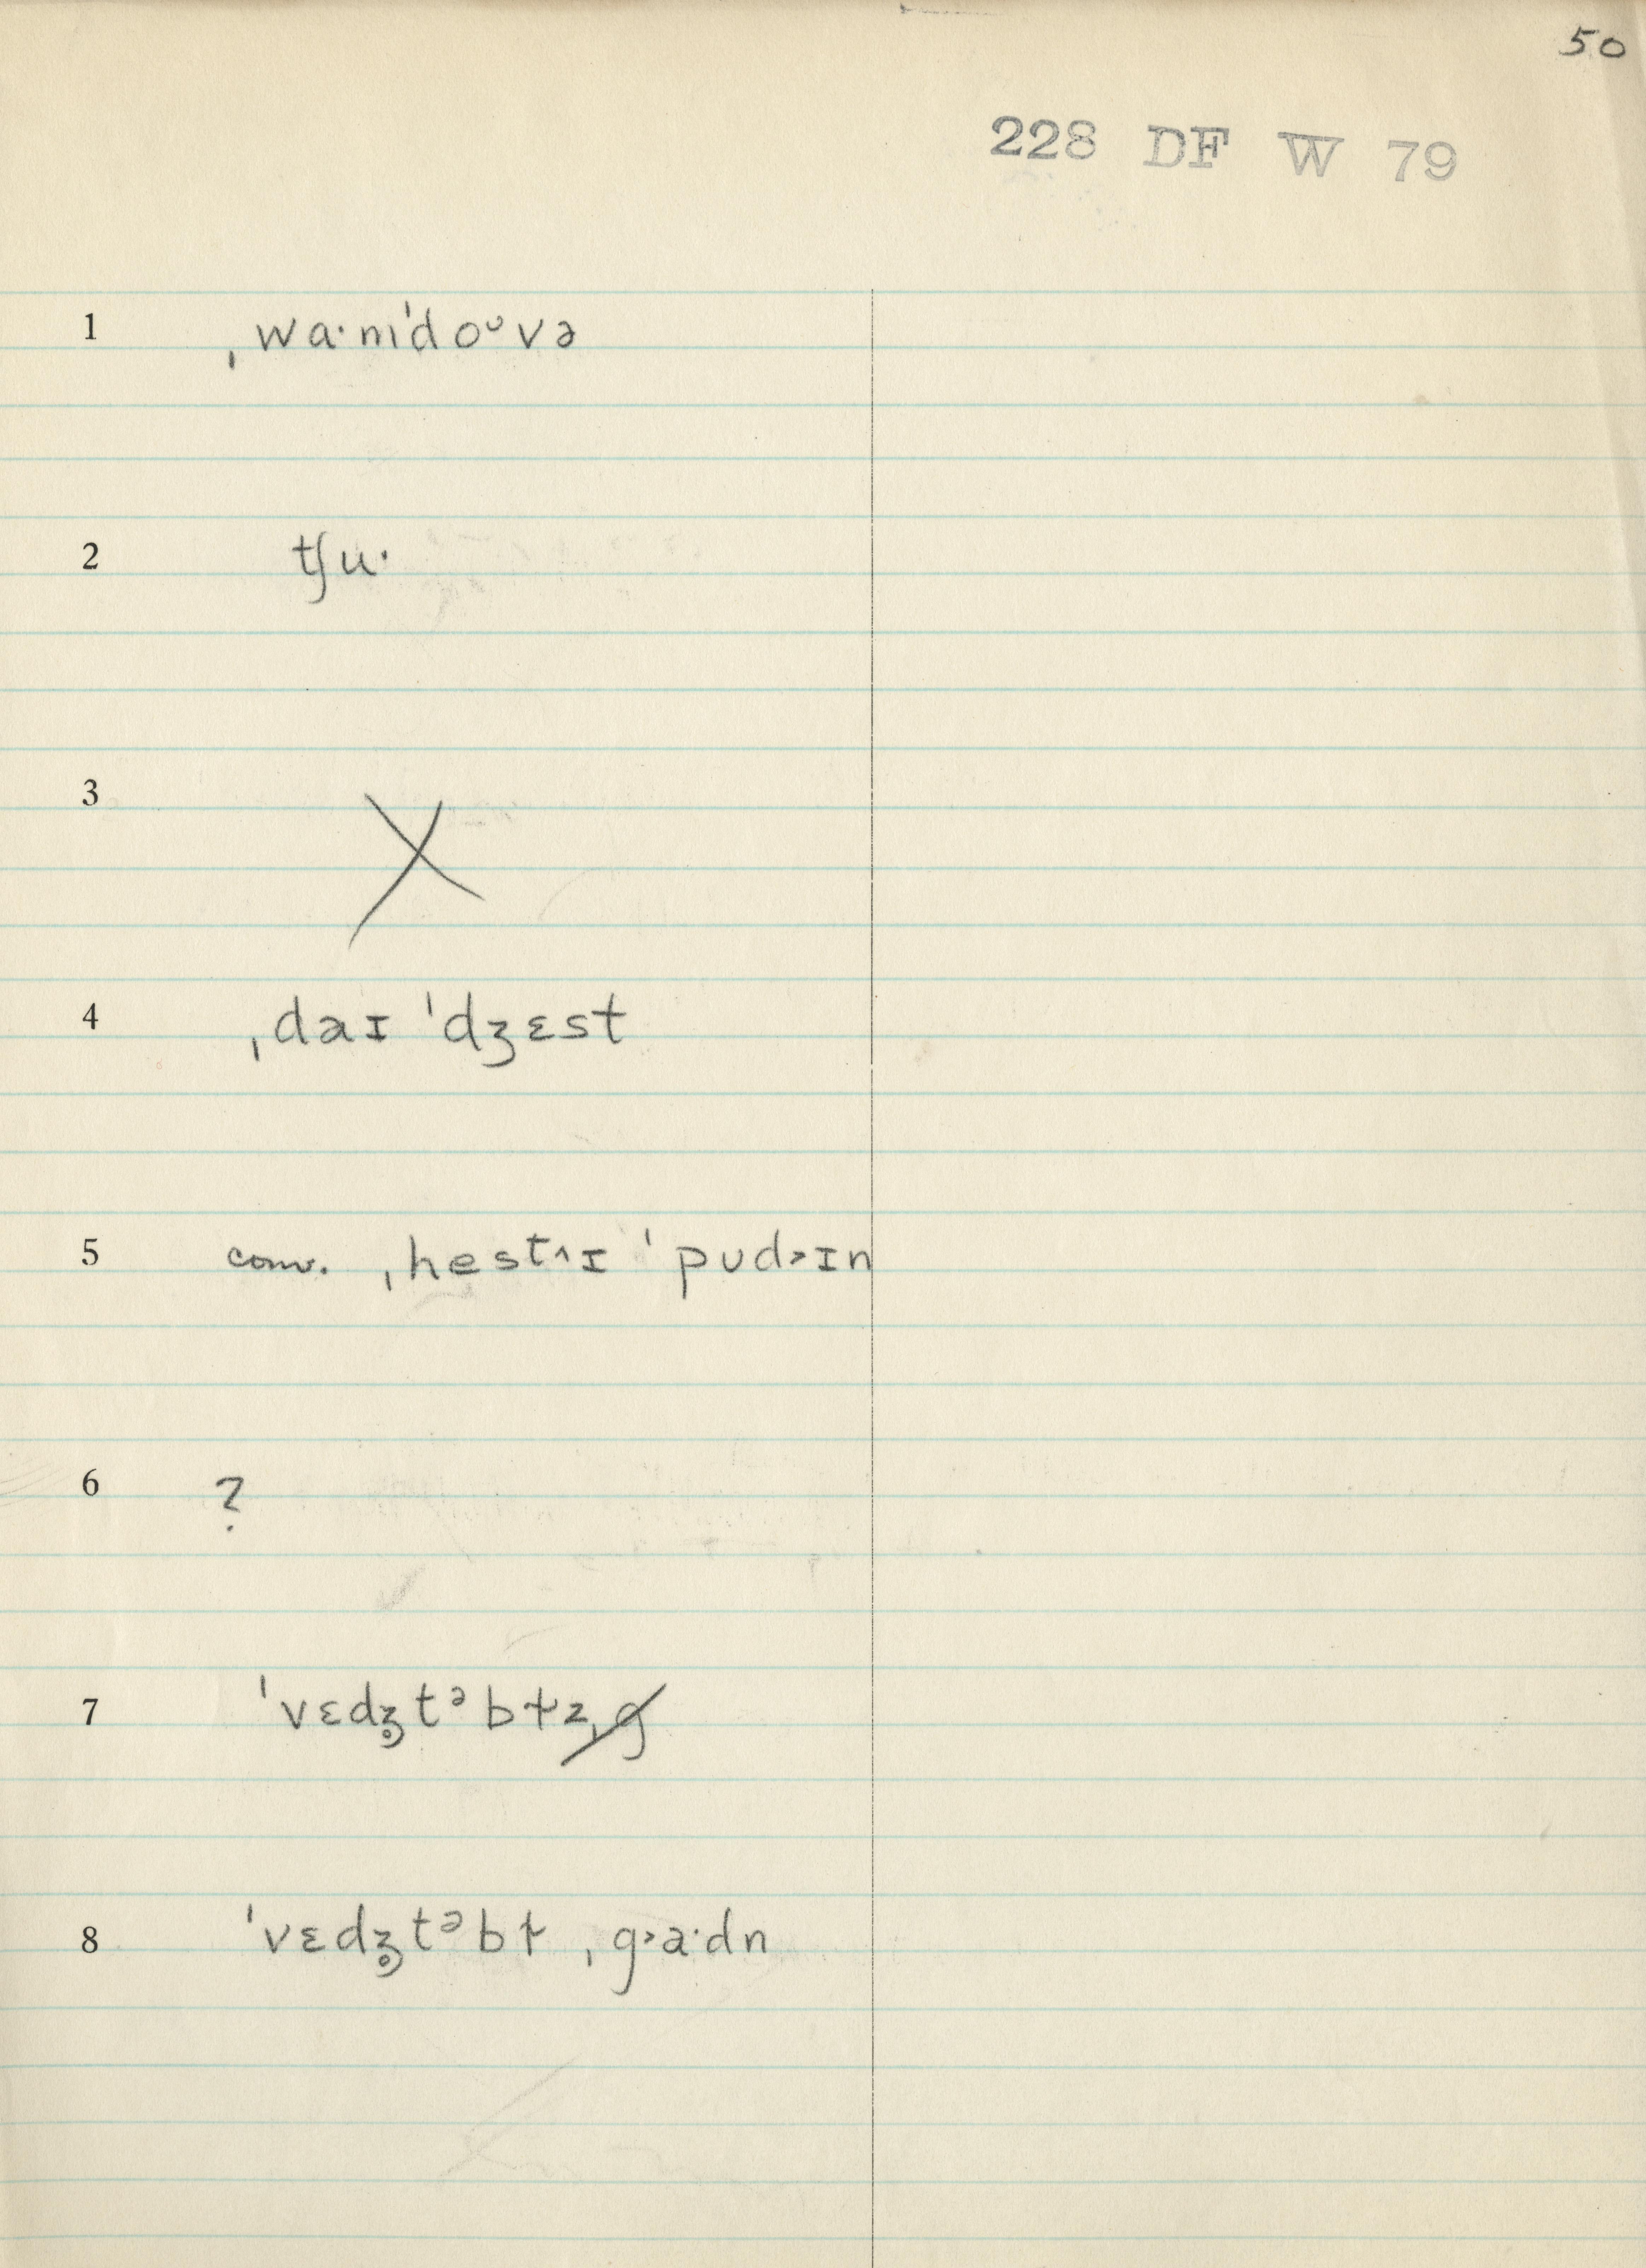 50
228 DF W 79
1 ˌwɑ·mɪˈdoᶷvə
2 tʃu·
3 X
4 ˌdaɪ ˈdʒɛst
5 conv. ˌhest˄ɪ ˈpud˃ɪn
6 ?
7 ˈvɛdʒ̥tᵊbɫz
8 ˈvɛdʒ̥tᵊbɫ ˌg˃a·dn